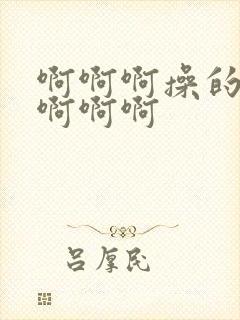 啊啊啊操的
啊啊啊
吕厚民